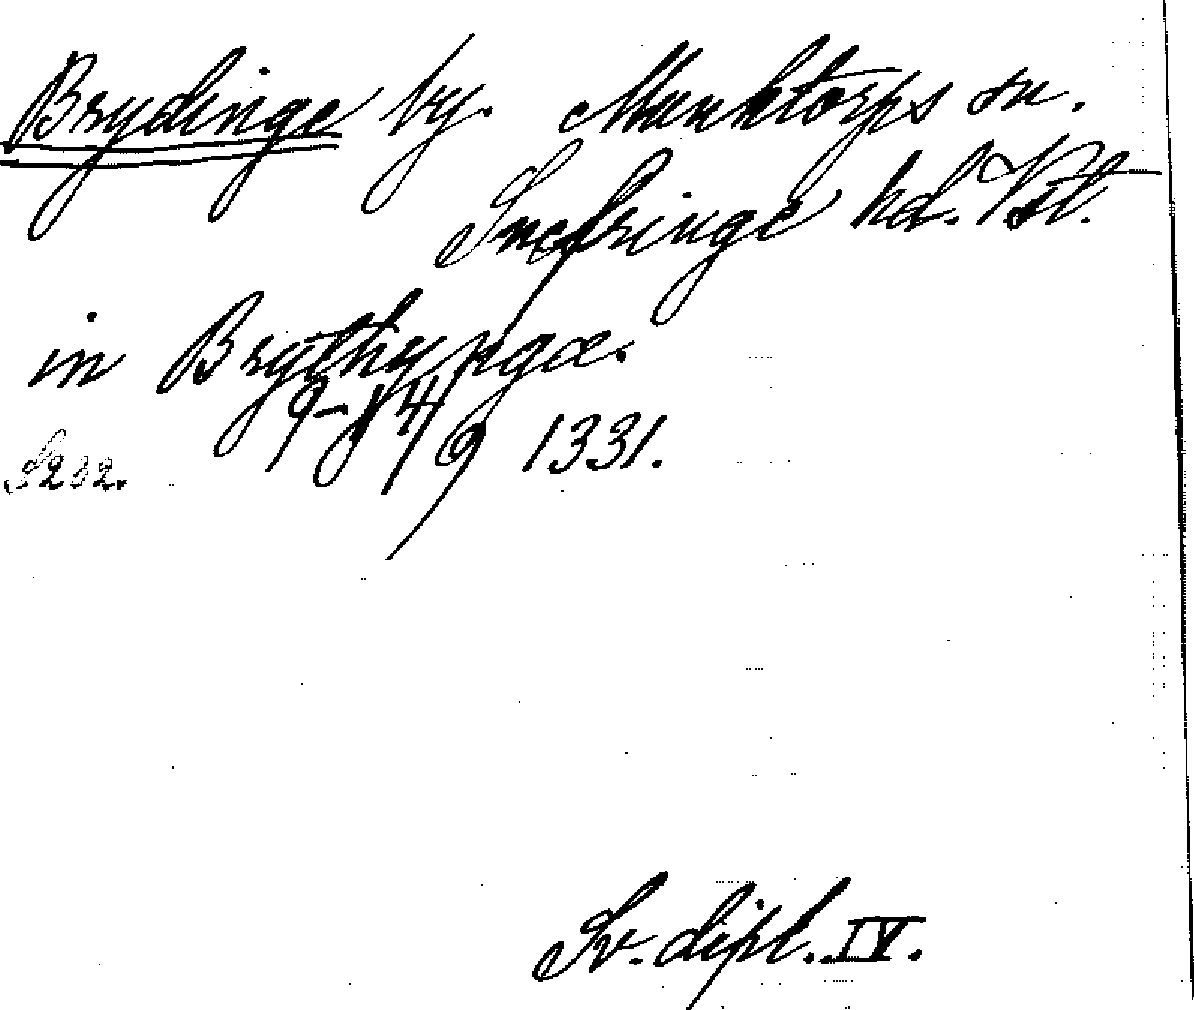 Brydinge by. Munktorps sn.
Snefringe hd. Vstl.
in Brythyngæ.
1331.
S 232.
Sv. dipl. IV.